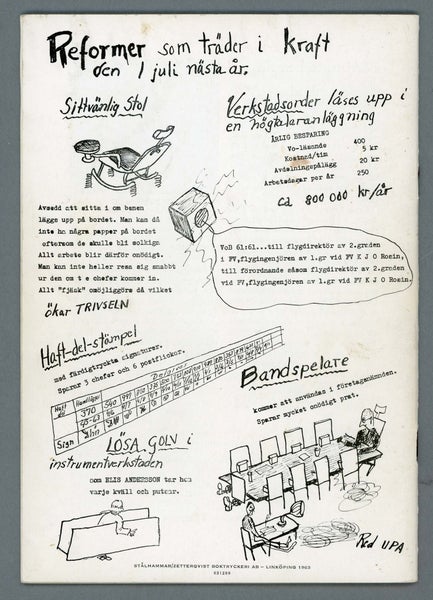 Reformer som träder i kraft
den 1 juli nästa år.
Sittvänlig Stol
Avsedd att sitta i om benen
lägge upp på bordet. Man kan då
inte ha några papper på bordet
eftersom de skulle bli solkiga
Allt arbete blir därför onödigt.
Man kan inte heller resa sig snabbt
ur den om t e chefer kommer in.
Allt "fjäsk" omöjliggörs då vilket
ökar TRIVSELN
Verkstadsorder läses upp i
en högtalaranläggning
ÅRLIG BESPARING
Vo-läsande 400
Kostnad/tim 5 kr
Avdelningspålägg 20 kr
Arbetsdagar per år 250
ca 800 000 kr/år
VoB 61:61...till flygdirektör av 2.graden
i FV,flygingenjören av 1.gr vid FV K J O Rosin,
till förordnande såsom flygdirektör av 2.graden
vid FV,flygingenjören av 1.gr vid FV K J O Rosin.
Haft-del-stämpel
med färdigtryckta signaturer.
Sparar 3 chefer och 6 postflickor.
Haft
del
Sign
LÖSA GOLV i
instrumentverkstaden
som ELIS ANDERSSON tar hem
varje kväll och putsar.
Bandspelare
kommer att användas i företagsnämnden.
Sparar mycket onödigt prat.
Red UPA
STÅLHAMMAR/ZETTERQVIST BOKTRYCKERI AB – LINKÖPING 1963